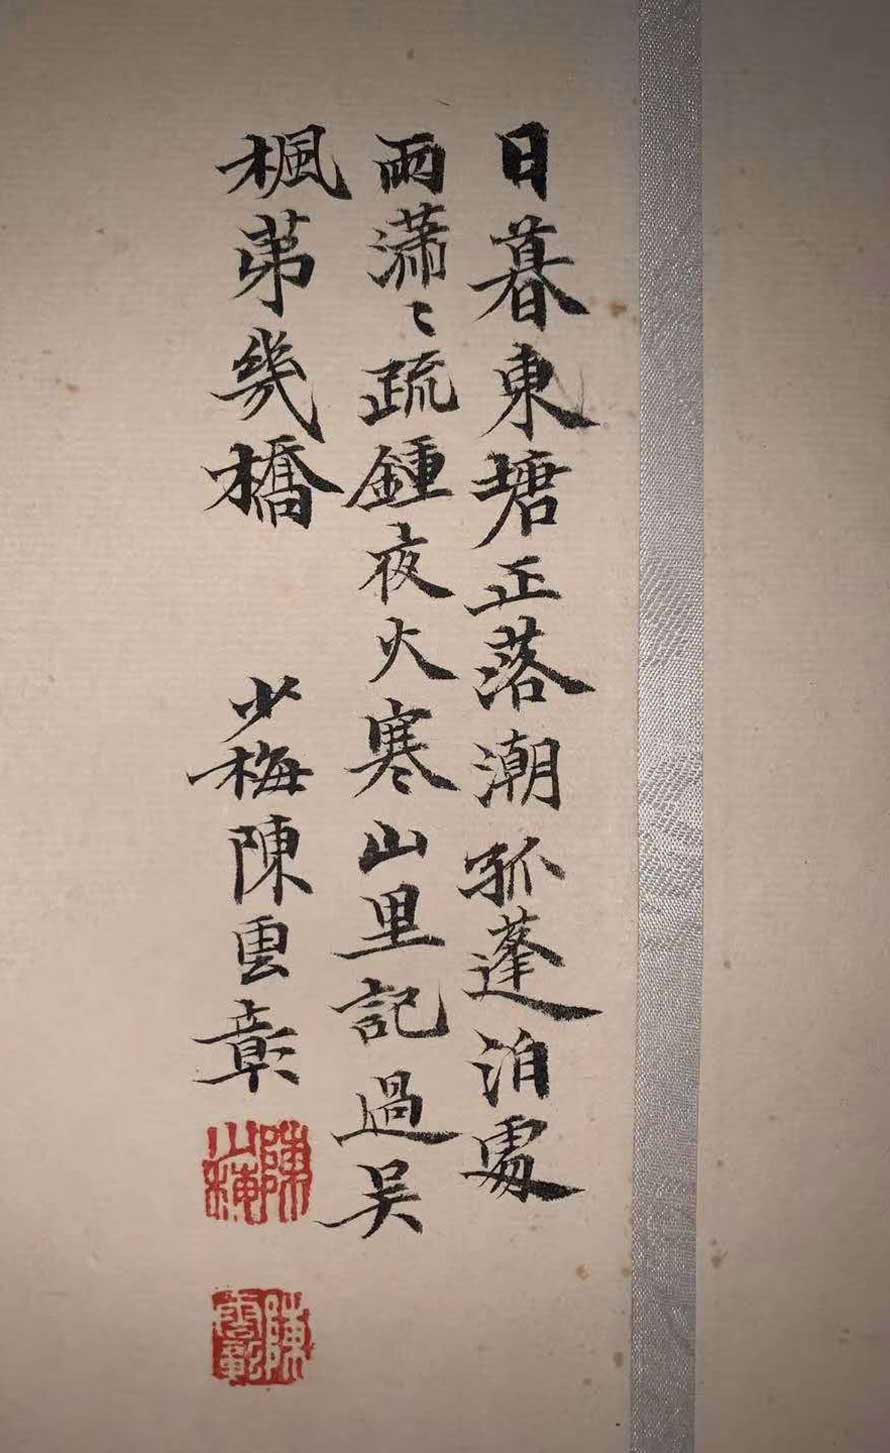 日暮東塘正落潮孤蓬泊處
雨瀟〻疏鍾夜火寒山里記過吴
楓苐幾橋
少梅陳雲彰
陳少梅
陳雲彰